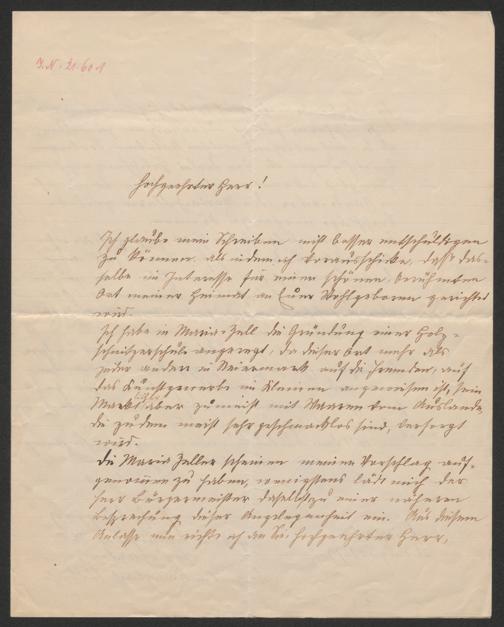 J.N. 21.601
Hochgeehrter Herr!
Ich glaube mein Schreiben nicht besser entschuldigen
zu können, als indem ich vorausschicke, dass das-
selbe im Interesse für einen schönen, berühmten
Ort meiner Heimat an Euer Wohlgeboren gerichtet
wird.
Ich habe in Maria-Zell die Gründung einer Holz-
schnitzerschule angeregt, da dieser Ort mehr als
jeder andere in Steiermark auf die Fremden, auf
das Kunstgewerbe im Kleinen angewiesen ist, sein
Markt aber zumeist mit Waaren vom Auslande,
die zudem meist sehr geschmacklos sind, versorgt
wird.
Die Maria Zeller scheinen meinen Vorschlag auf-
genommen zu haben, wenigstens lädt mich der
Herr Bürgermeister daselbst zu einer näheren
Besprechung dieser Angelegenheit ein. Aus diesem
Anlasse nun richte ich an Sie, hochgeehrter Herr,